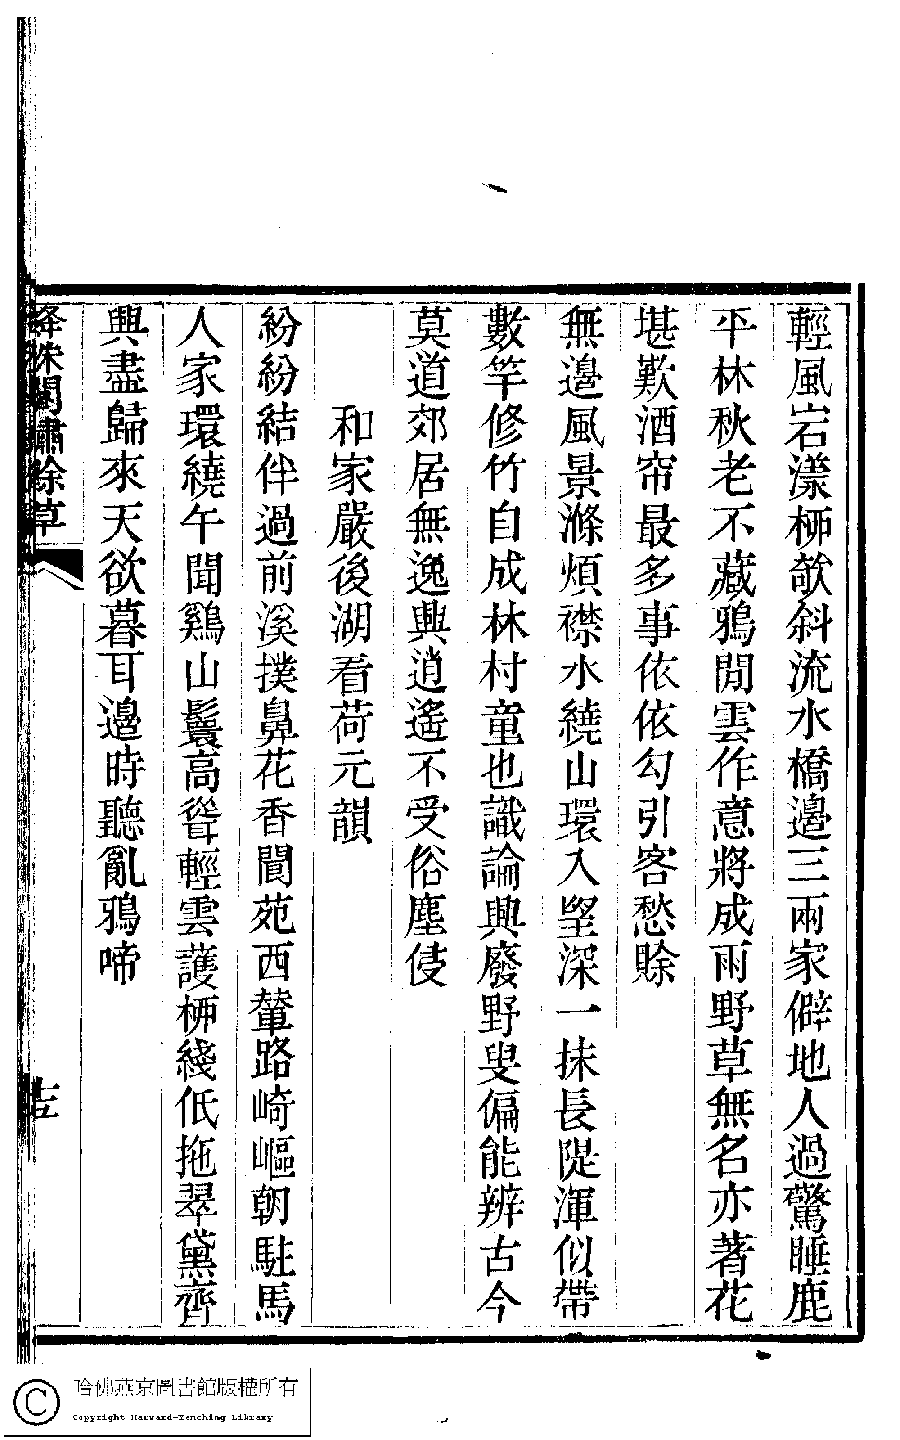 輕風岩漾柳欹斜流水橋邊三兩家僻地人過驚睡鹿
平林秋老不藏鴉閒雲作意將成雨野草無名亦著花
堪歎酒帘最多事依依勾引客愁賒
無邊風景滌煩襟水繞山環入望深一抹長隄渾似帶
數竿修竹自成林村童也識論興廢野叟偏能辨古今
莫道郊居無逸興逍遙不受俗塵侵
和家嚴後湖看荷元韻
紛紛結伴過前溪撲鼻花香閬苑西輦路崎嶇朝駐馬
人家環繞午聞鷄山鬟高聳輕雲護柳綫低拖翠黛齊
興盡歸來天欲暮耳邊時聽亂鴉啼
絳姝閣繡餘草
十五
哈佛燕京圖書館版權所有
Copyright Harvard-Yenching Library